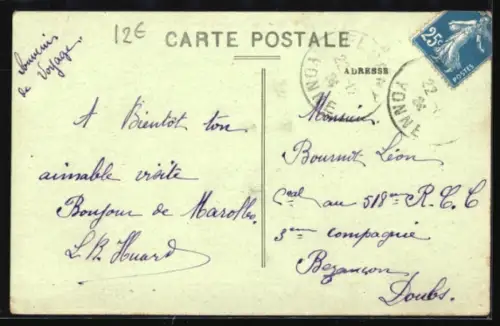 Souvenir
de Voyage
12€
CARTE POSTALE
ADRESSE
25c
POSTES
YONNE
22
YONNE
A Bientot ton
aimable visite
Bonjour de Marolles
L. B. Huard
Monsieur
Bournit Léon
Cal au 518me R.C.C
3me compagnie
Bezançon
Doubs.